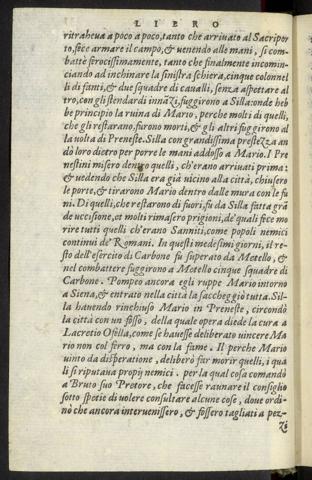 LIBRO
ritraheua a poco a poco, tanto che arriuato al Sacripor
to, fece armare il campo, & uenendo alle mani, si com-
battè ferocissimamente, tanto che finalmente incomin-
ciando ad inchinare la sinistra schiera, cinque colonnel
li di fanti, & due squadre di caualli, senza aspettare al
tro, con gli stendardi innãzi, fuggirono a Silla: onde heb
be principio la ruina di Mario, perche molti di quelli,
che gli restarano, furono morti, & gli altri fuggirono al
la uolta di Preneste. Silla con grandissima prestezza an
dò loro dietro per porre le mani addosso a Mario. I Pre
nestini misero dentro quelli, ch'erano arriuati prima:
& uedendo che Silla era già uicino alla città, chiusero
le porte, & tirarono Mario dentro dalle mura con le fu
ni. Di quelli, che restarono di fuori, fu da Silla fatta grã
de uccisione, et molti rimasero prigioni, de' quali fece mo
rire tutti quelli ch'erano Sanniti, come popoli nemici
continui de' Romani. In questi medesimi giorni, il re-
sto dell'esercito di Carbone fu superato da Metello, &
nel combattere fuggirono a Metello cinque squadre di
Carbone. Pompeo ancora egli ruppe Mario intorno
a Siena, & entrato nella città la saccheggiò tutta. Sil-
la hauendo rinchiuso Mario in Preneste, circondò
la città con un fosso, della quale opera diede la cura a
Lucretio Ofella, come se hauesse deliberato uincere Ma
rio non col ferro, ma con la fame. Il perche Mario
uinto da disperatione, deliberò far morir quelli, i qua
li si riputaua proprij nemici. per la qual cosa comandò
a Bruto suo Pretore, che facesse raunare il consiglio
sotto spetie di uolere consultare alcune cose, doue ordi-
nò che ancora interuenissero, & fossero tagliati a pez-
zi